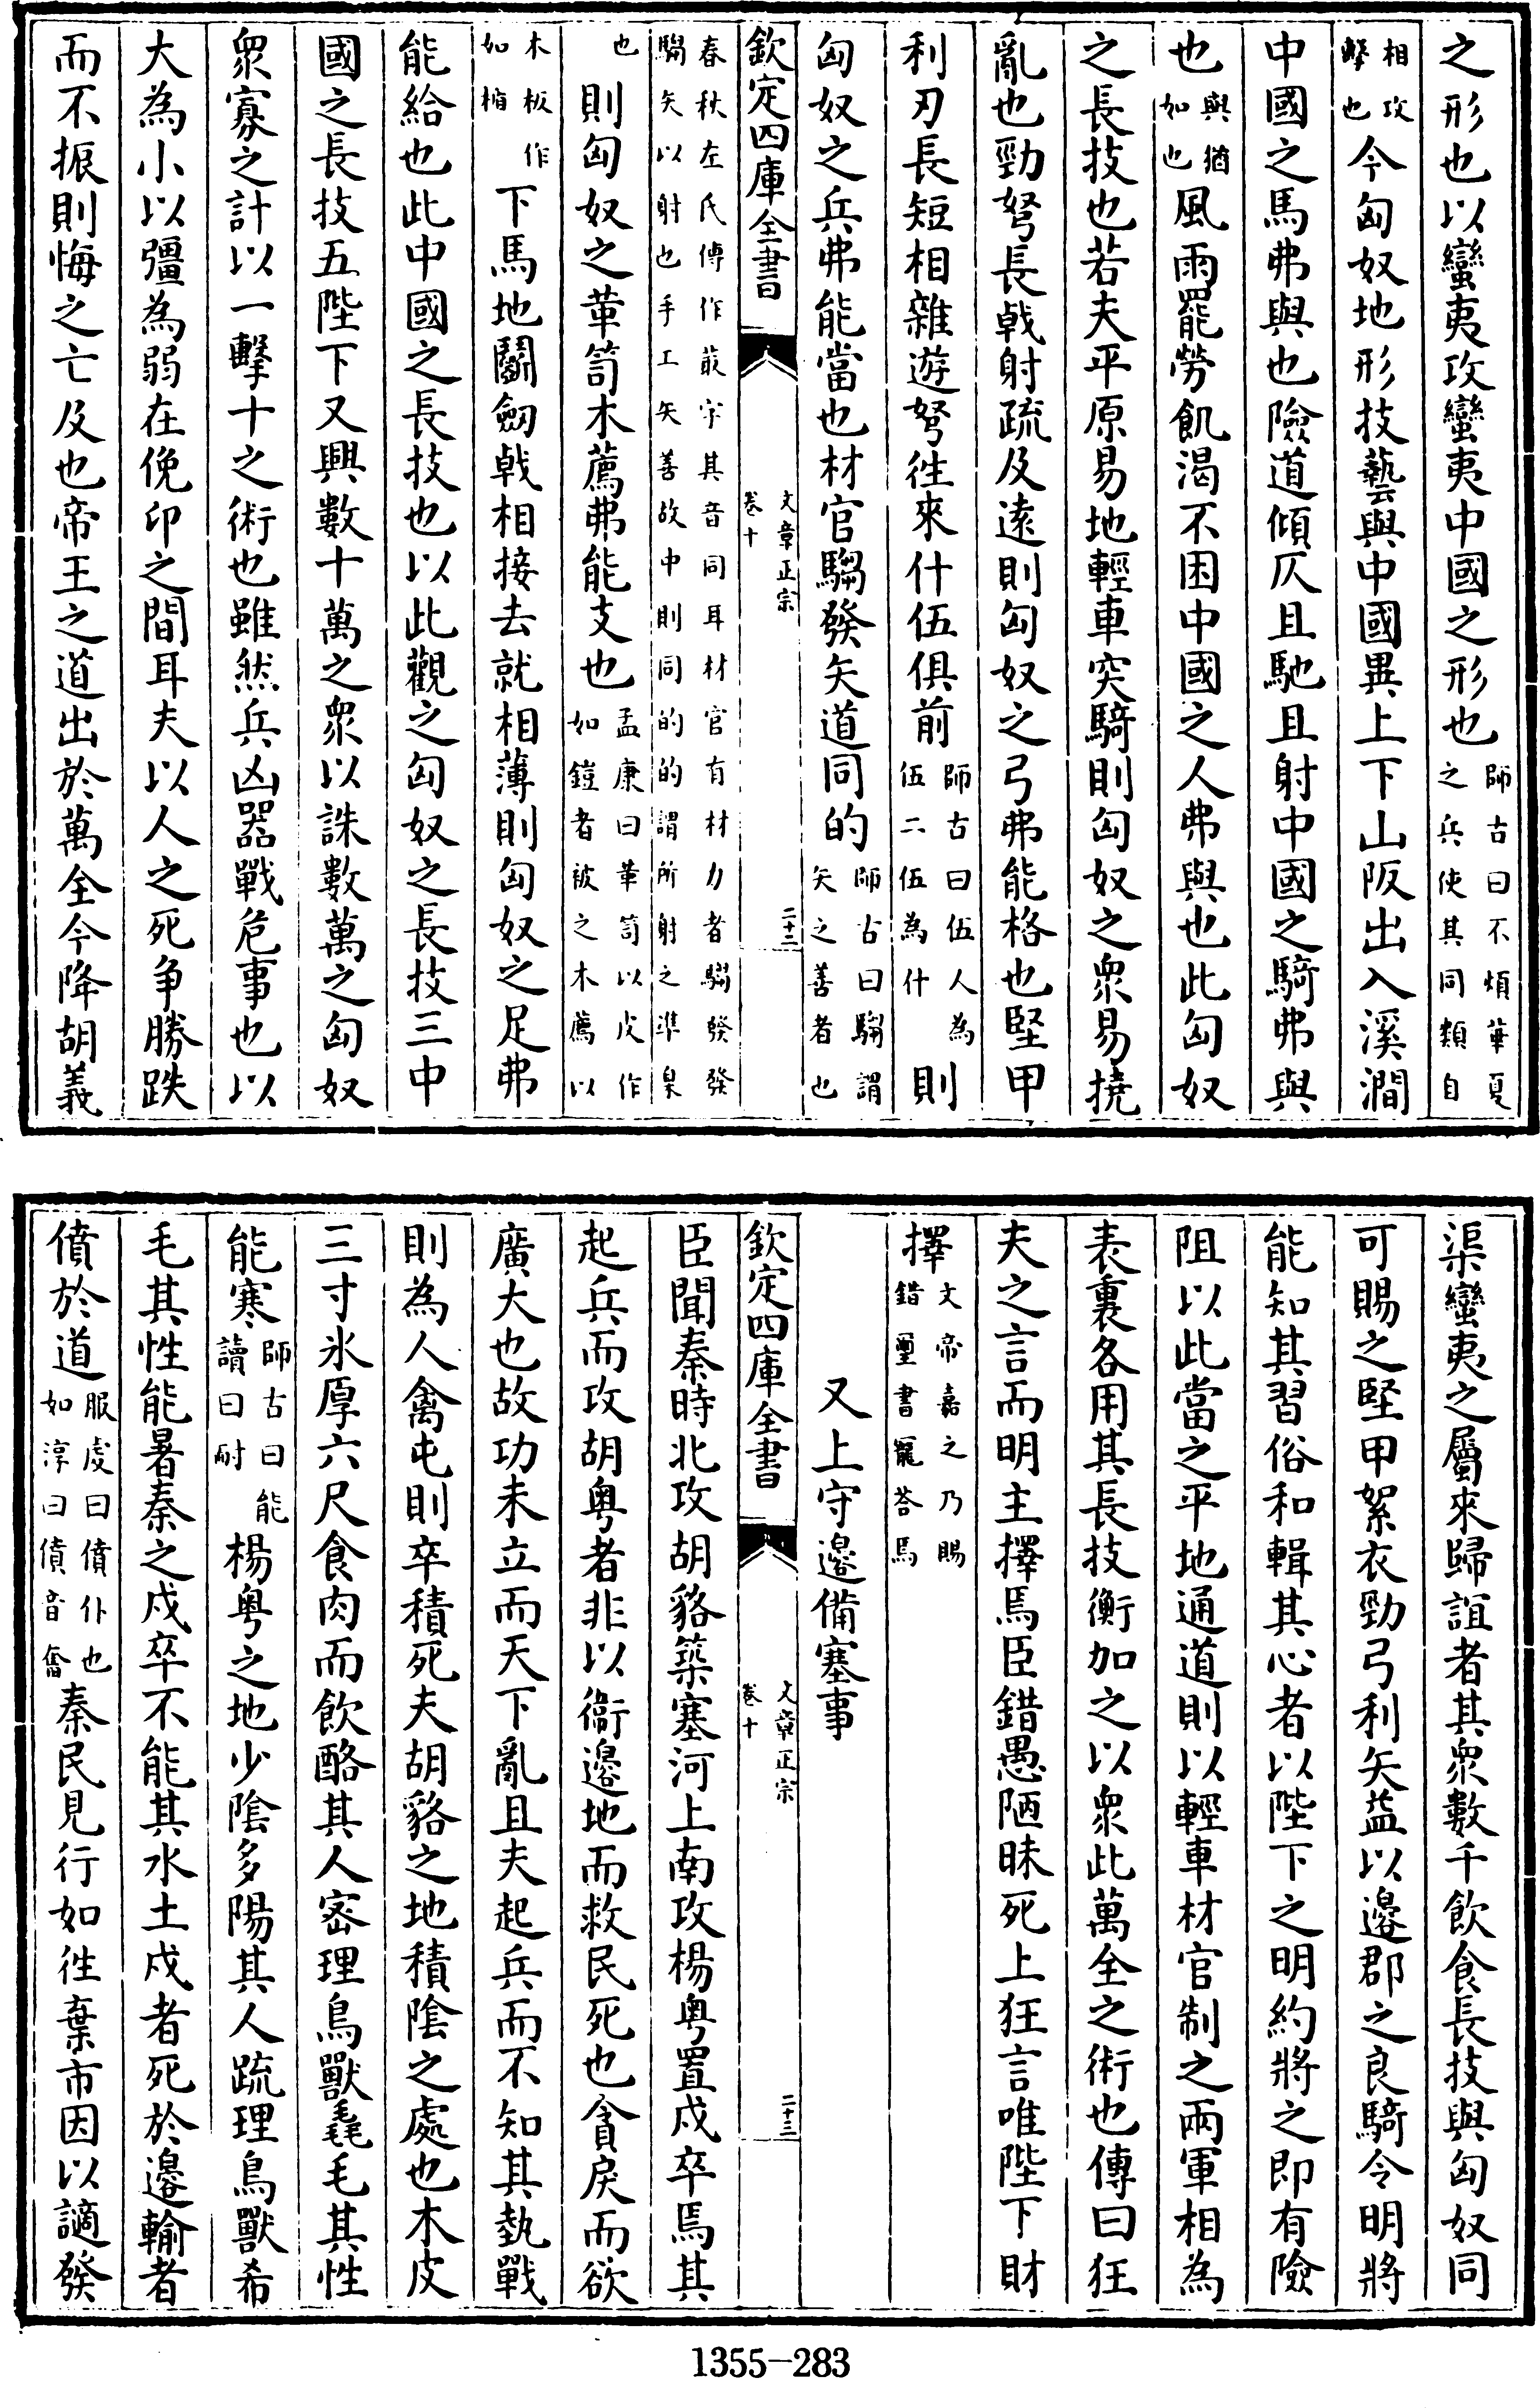 之形也以蠻夷攻蠻夷中國之形也師古曰不煩華夏之兵使其同類自
相攻擊也今匈奴地形技藝與中國異上下山阪出入溪澗
中國之馬弗與也險道傾仄且馳且射中國之騎弗與
也與猶如也風雨罷勞飢渴不困中國之人弗與也此匈奴
之長技也若夫平原易地輕車突騎則匈奴之衆易撓
亂也勁弩長戟射疏及逺則匈奴之弓弗能格也堅甲
利刃長短相雜遊弩徃來什伍俱前師古曰伍人為伍二伍為什則
匈奴之兵弗能當也材官騶發矢道同的師古曰騶謂矢之善者也
欽定四庫全書
文章正宗
卷十
二十三
春秋左氏傳作菆字其音同耳材官有材力者騶發發騶矢以射也手工矢善故中則同的的謂所射之準臬
也則匈奴之革笥木薦弗能支也孟康曰革笥以皮作如鎧者被之木薦以
木板作如楯下馬地鬬劒戟相接去就相薄則匈奴之足弗
能給也此中國之長技也以此觀之匈奴之長技三中
國之長技五陛下又興數十萬之衆以誅數萬之匈奴
衆寡之計以一擊十之術也雖然兵凶器戰危事也以
大為小以彊為弱在俛卬之間耳夫以人之死争勝跌
而不振則悔之亡及也帝王之道出於萬全今降胡義
渠蠻夷之屬來歸誼者其衆數千飲食長技與匈奴同
可賜之堅甲絮衣勁弓利矢益以邊郡之良騎令明將
能知其習俗和輯其心者以陛下之明約將之即有險
阻以此當之平地通道則以輕車材官制之兩軍相為
表裏各用其長技衡加之以衆此萬全之術也傳曰狂
夫之言而明主擇焉臣錯愚陋昧死上狂言唯陛下財
擇文帝嘉之乃賜錯璽書寵荅焉
又上守邊備塞事
欽定四庫全書
文章正宗
卷十
二十三
臣聞秦時北攻胡貉築塞河上南攻楊粤置戍卒焉其
起兵而攻胡粤者非以衞邊地而救民死也貪戾而欲
廣大也故功未立而天下亂且夫起兵而不知其埶戰
則為人禽屯則卒積死夫胡貉之地積陰之處也木皮
三寸氷厚六尺食肉而飲酪其人宻理鳥獸毳毛其性
能寒師古曰能讀曰耐楊粤之地少陰多陽其人疏理鳥獸希
毛其性能暑秦之戍卒不能其水土戍者死於邊輸者
僨於道服虔曰僨仆也如淳曰僨音奮秦民見行如徃棄市因以讁發
1355-283